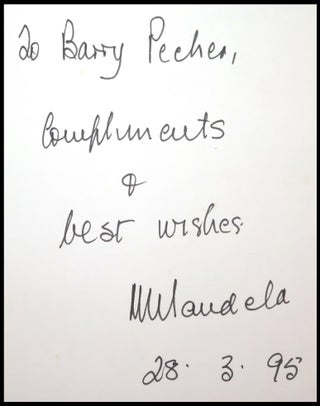 To Barry Pecher,
Compliments
&
best wishes
NMandela
28. 3. 95